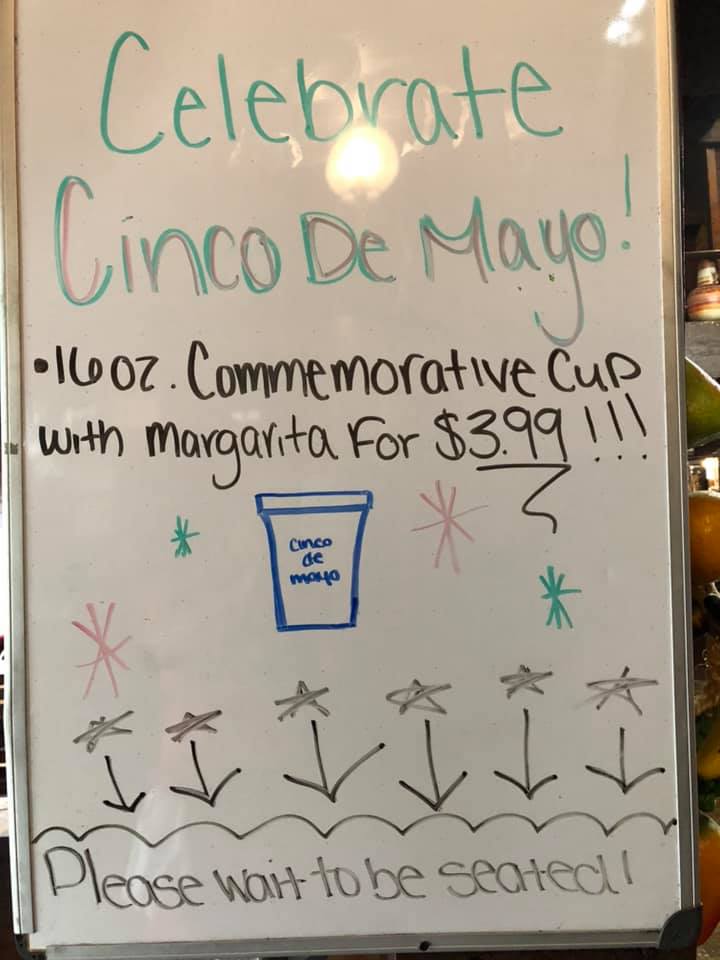 Celebrate
Cinco De Mayo!
•16oz. Commemorative Cup
with margarita For $3.99!!!
Cinco
de
mayo
Please wait to be seated!